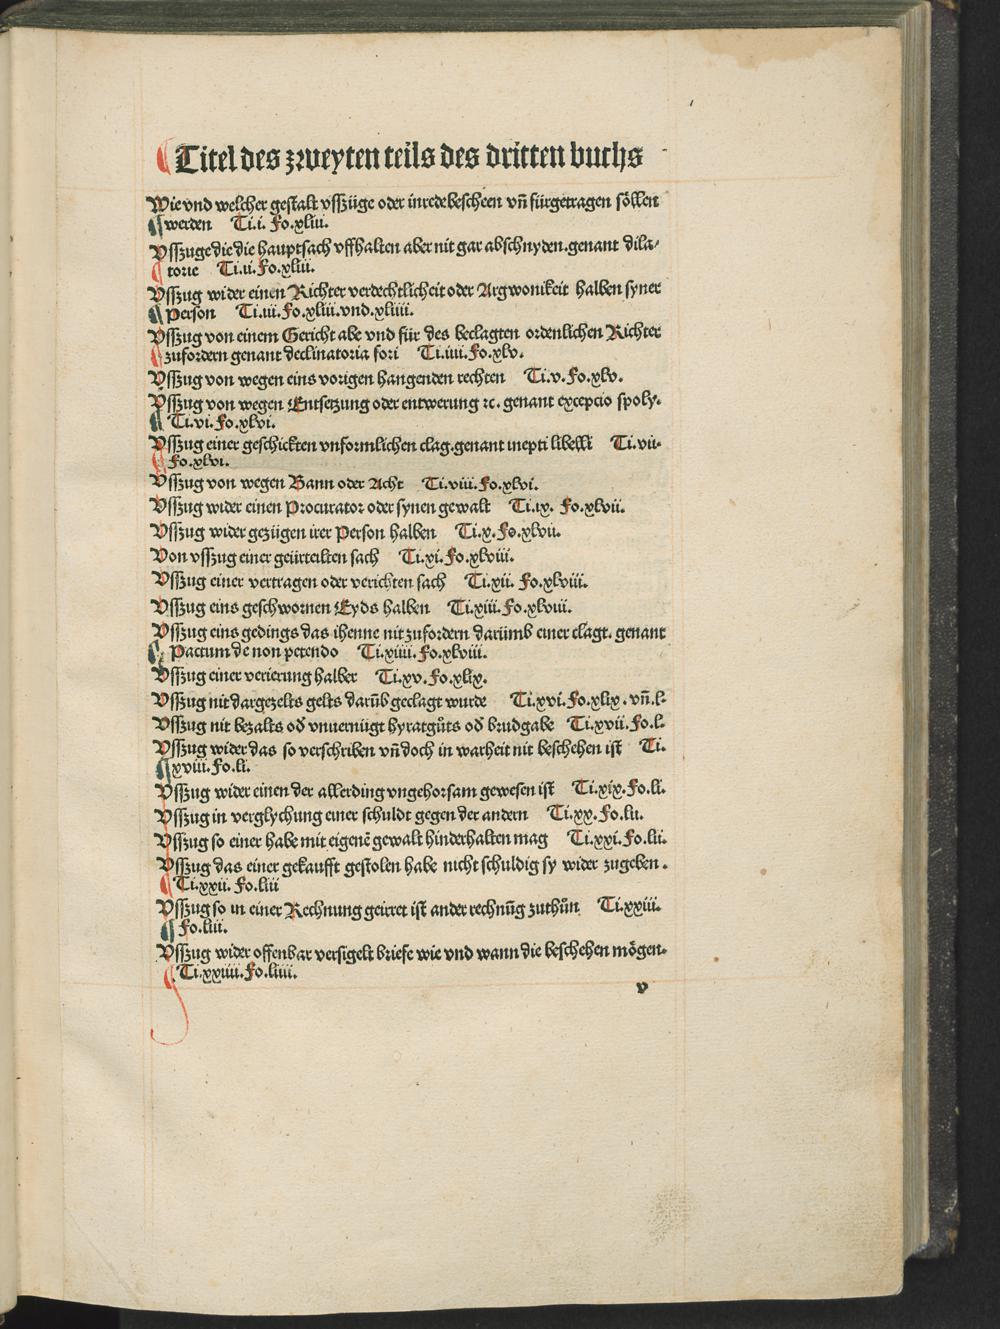 Titel des zweyten teils des dritten buchs
Wie vnd welcher gestalt vsszüge oder inrede bescheen vn̄ fürgetragen söllen
werden Ti.i. Fo.xliii.
Vsszuge die die hauptsach vffhalten aber nit gar abschnyden.genant dila⸗
torie Ti.ii.Fo.xliii.
Vsszug wider einen Richter verdechtlicheit oder Argwonikeit halben syner
Person Ti.iii.Fo.xliii.vnd.xliiii.
Vsszug von einem Gericht abe vnd für des beclagten ordenlichen Richter
zufordern genant declinatoria fori Ti.iiii.Fo.xlv.
Vsszug von wegen eins vorigen hangenden rechten Ti.v.Fo.xlv.
Vsszug von wegen Entsetzung oder entwerung ꝛc. genant excepcio spoly.
Ti.vi.Fo.xlvi.
Vsszug einer geschickten vnformlichen clag.genant inepti libelli Ti.vii.
Fo.xlvi.
Vsszug von wegen Bann oder Acht Ti.viii.Fo.xlvi.
Vsszug wider einen Procurator oder synen gewalt Ti.ix. Fo.xlvii.
Vsszug wider gezügen irer Person halben Ti.x.Fo.xlvii.
Von vsszug einer geürteilten sach Ti.xi.Fo.xlviii.
Vsszug einer vertragen oder verichten sach Ti.xii. Fo.xlviii.
Vsszug eins geschwornen Eyds halben Ti.xiii.Fo.xlviii.
Vsszug eins gedings das ihenne nit zufordern darümb einer clagt. genant
Pactum de non petendo Ti.xiiii.Fo.xlviii.
Vsszug einer verierung halber Ti.xv.Fo.xlix.
Vsszug nit dargezelts gelts darūb geclagt wurde Ti.xvi.Fo.xlix.vn̄.l.
Vsszug nit bezalts od̕ vnuernügt hyratgůts od̕ brudgabe Ti.xvii.Fo.l.
Vsszug wider das so verschriben vn̄ doch in warheit nit beschehen ist Ti.
xviii.Fo.li.
Vsszug wider einen der allerding vngehorsam gewesen ist Ti.xix.Fo.li.
Vsszug in verglychung einer schuldt gegen der andern Ti.xx.Fo.lii.
Vsszug so einer habe mit eigenē gewalt hinderhalten mag Ti.xxi.Fo.lii.
Vsszug das einer gekaufft gestolen habe nicht schuldig sy wider zugeben.
Ti.xxii.Fo.liii
Vsszug so in einer Rechnung geirret ist ander rechnūg zuthůn Ti.xxiii.
Fo.liii.
Vsszug wider offenbar versigelt briefe wie vnd wann die beschehen mögen.
Ti.xxiiii.Fo.liiii.
v